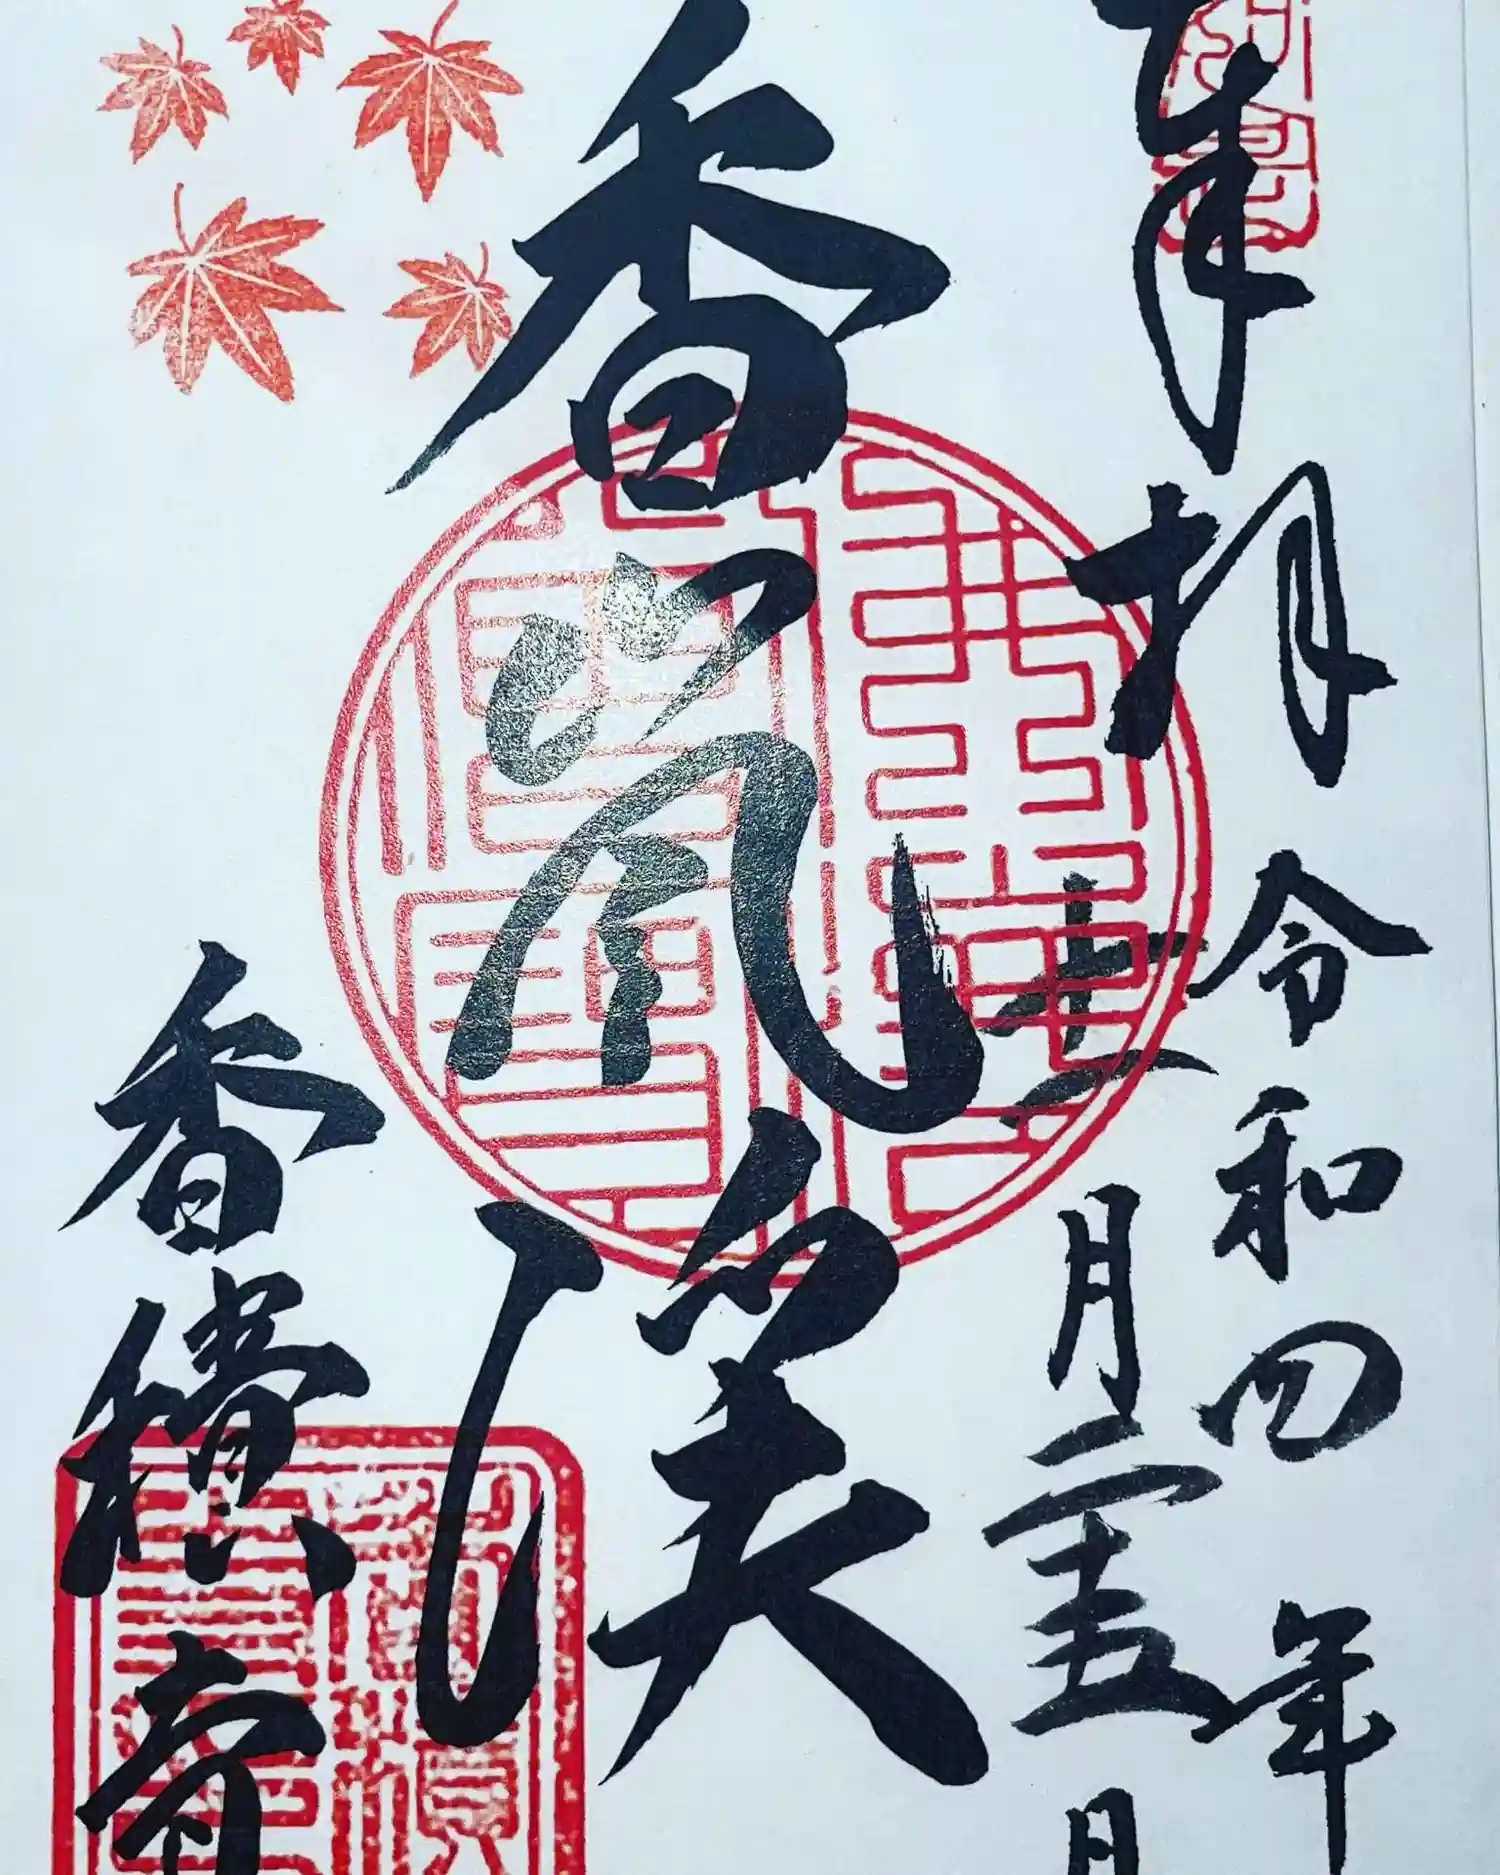 奉拝
令和四年
十一月二十五日
香嵐溪
香積寺